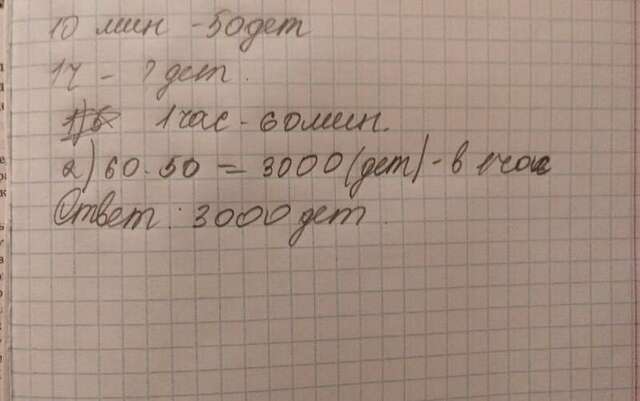 10 мин - 50 дет
1ч - ? дет.
1 час - 60 мин.
2) 60 · 50 = 3000 (дет) - в 1 час
Ответ: 3000 дет.